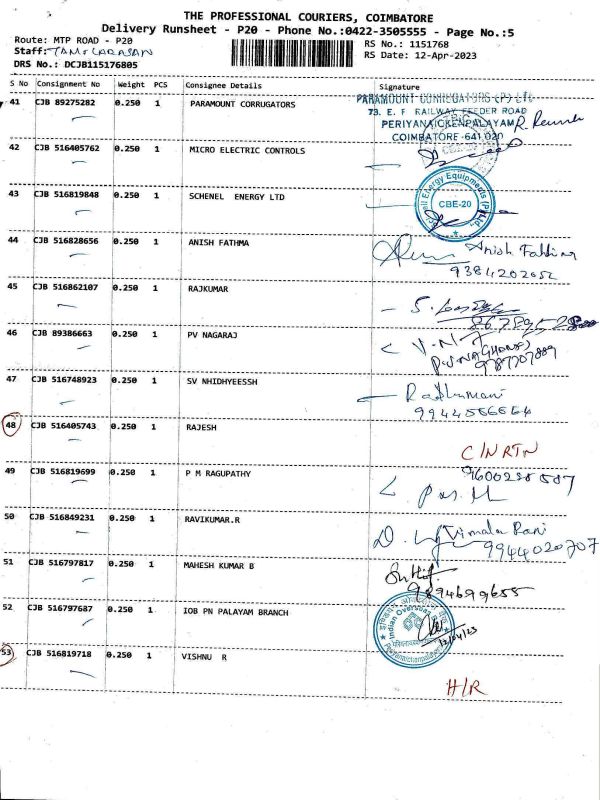 THE PROFESSIONAL COURIERS, COIMBATORE
Delivery Runsheet - P20 - Phone No.:0422-3505555 - Page No.:5
Route: MTP ROAD - P20
RS No.: 1151768
Staff: TAMILARASAN
RS Date: 12-Apr-2023
DRS No.: DCJB115176805
S No Consignment No Weight PCS Consignee Details Signature
41 CJB 89275282 0.250 1 PARAMOUNT CORRUGATORS
PARAMOUNT CORRUGATORS (P) LTD
73, E. F RAILWAY FEEDER ROAD
PERIYANAICKENPALAYAM
COIMBATORE-641 020
42 CJB 516405762 0.250 1 MICRO ELECTRIC CONTROLS
43 CJB 516819848 0.250 1 SCHENEL ENERGY LTD
Energy Equipments (P) Ltd.
CBE-20
44 CJB 516828656 0.250 1 ANISH FATHMA
Anish Fathima
9384202052
45 CJB 516862107 0.250 1 RAJKUMAR
46 CJB 89386663 0.250 1 PV NAGARAJ
9787707889
47 CJB 516748923 0.250 1 SV NHIDHYEESSH
Radhamani
9944566564
48 CJB 516405743 0.250 1 RAJESH
C/N RTN
49 CJB 516819699 0.250 1 P M RAGUPATHY
50 CJB 516849231 0.250 1 RAVIKUMAR.R
Vimala Rani
9944020707
51 CJB 516797817 0.250 1 MAHESH KUMAR B
9894699655
52 CJB 516797687 0.250 1 IOB PN PALAYAM BRANCH
Indian Overseas Bank
12/04/23
53 CJB 516819718 0.250 1 VISHNU R
H/R